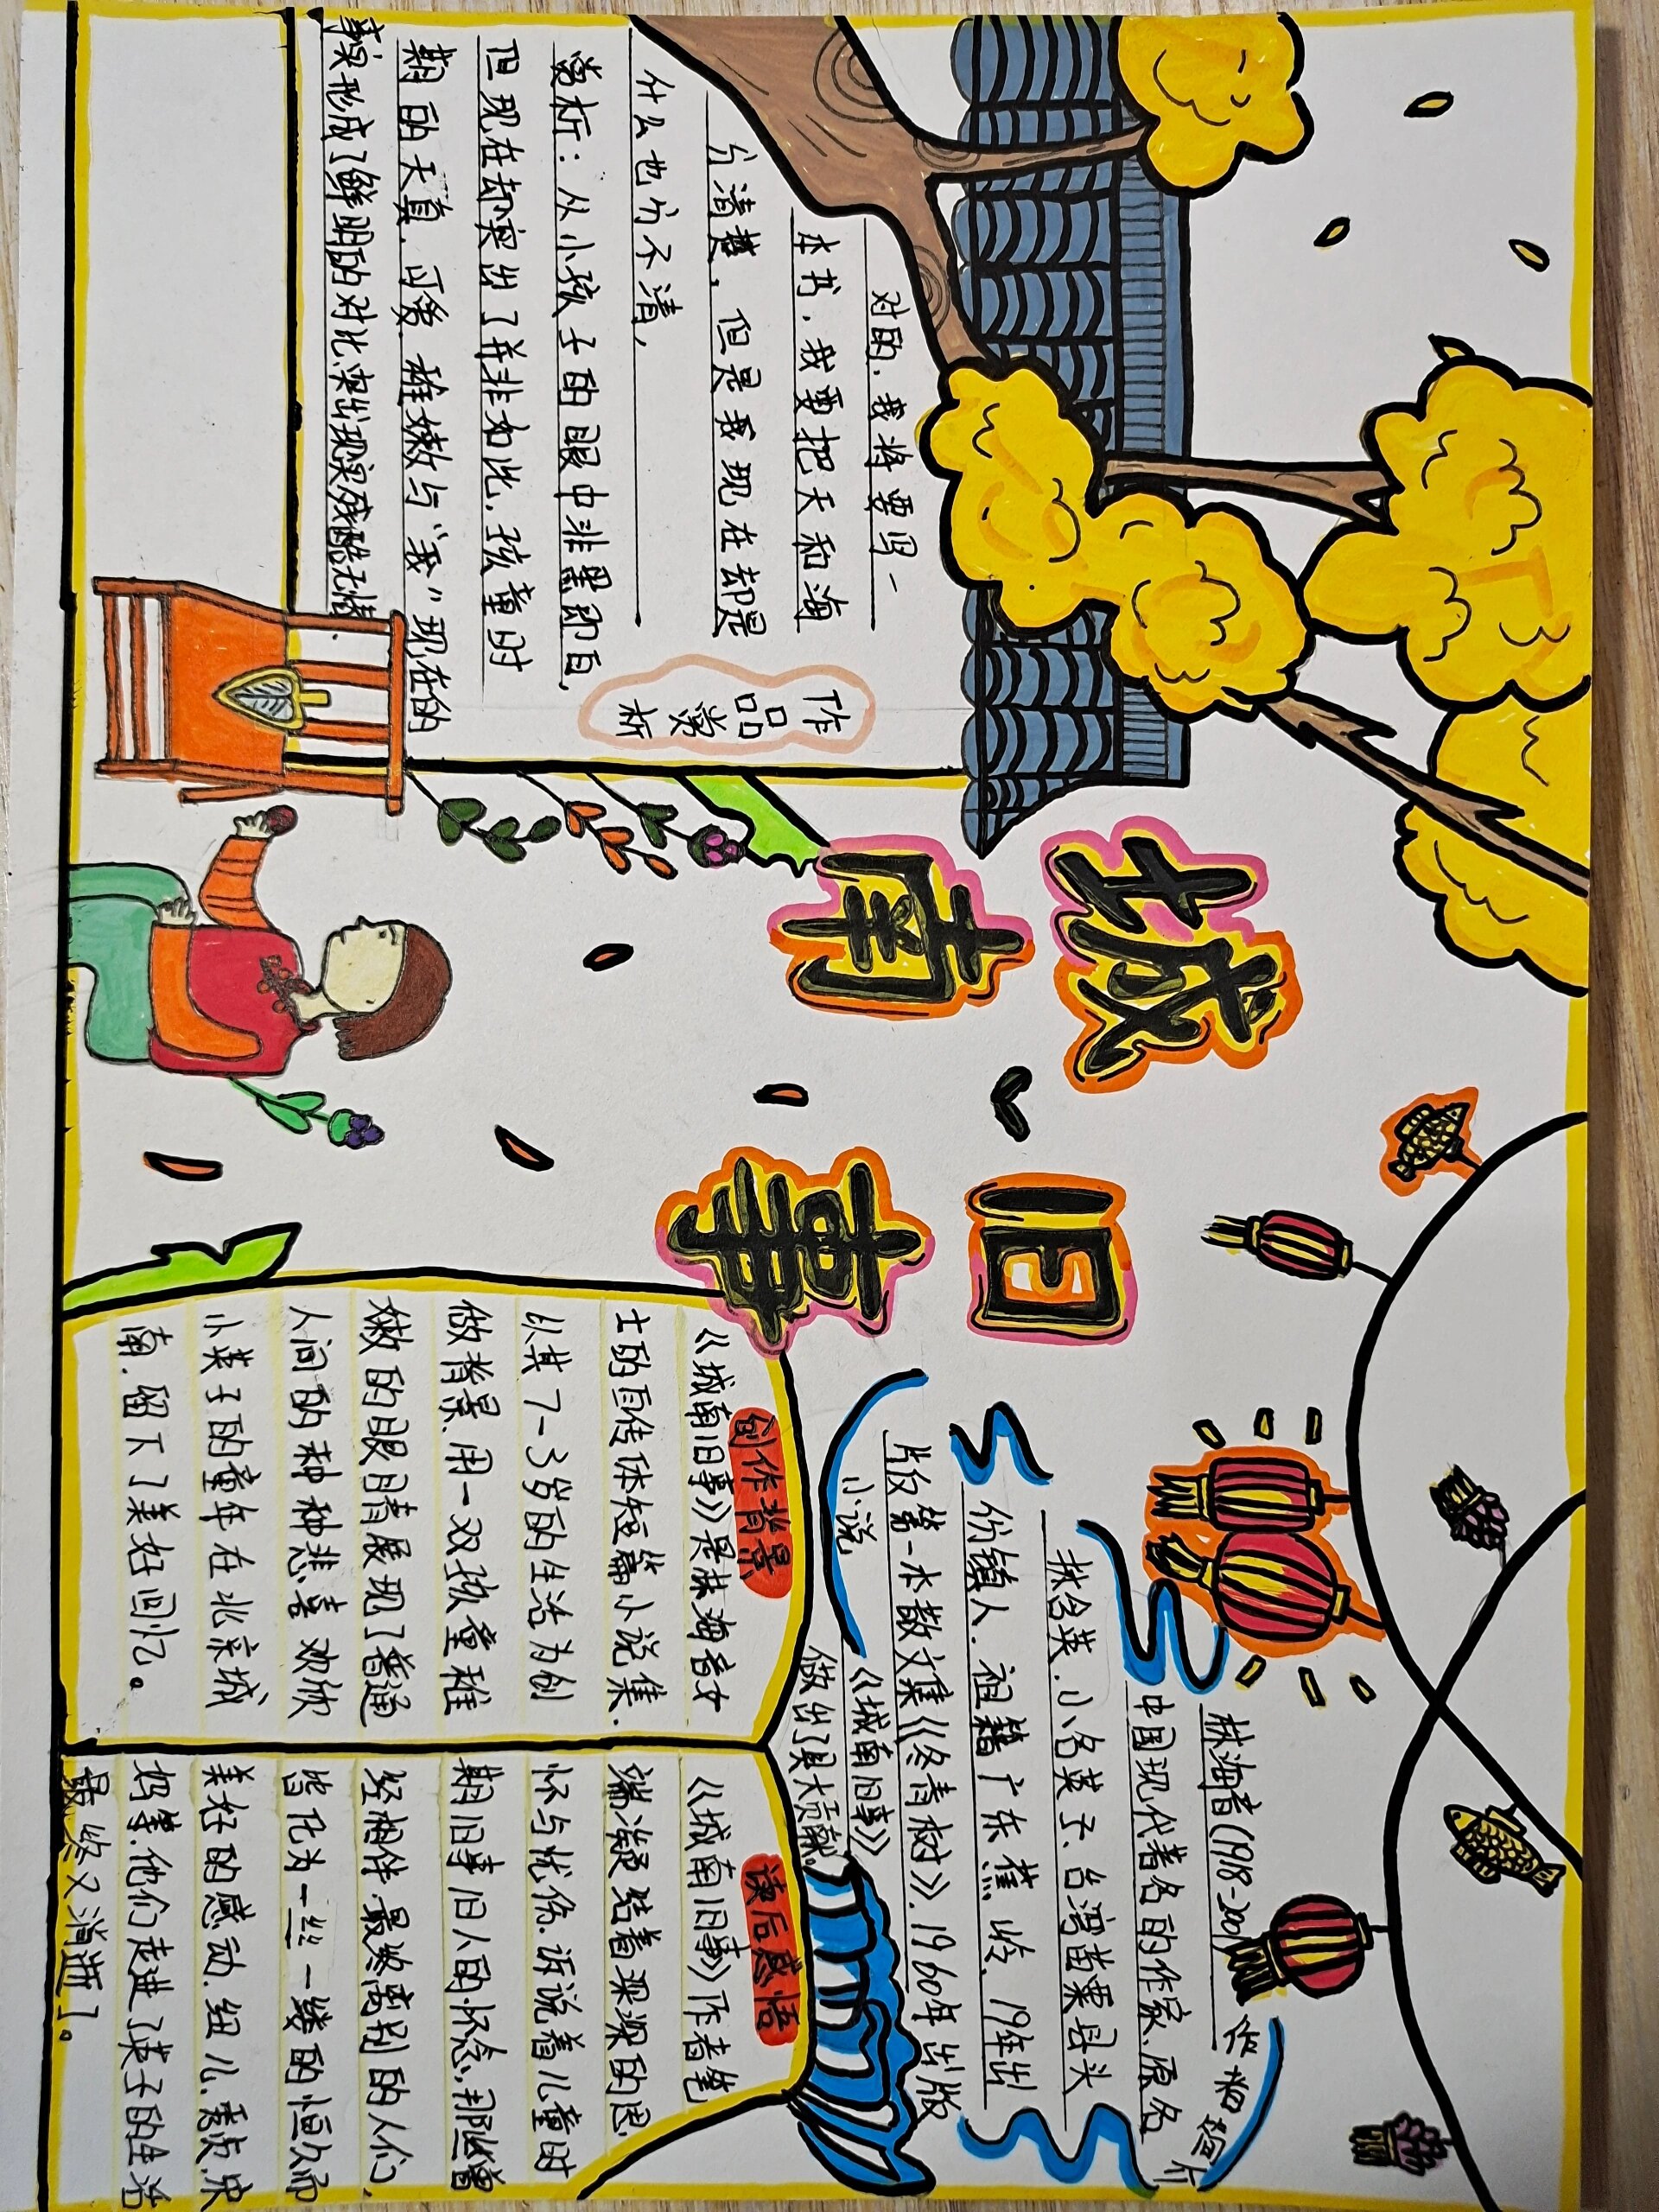 城南旧事
作品赏析
对的，我将要写一
本书，我要把天和海
分清楚，但是我现在却是
什么也分不清，
赏析：从小孩子的眼中非黑即白，
但现在却突出了并非如此，孩童时
期的天真、可爱、稚嫩与“我”现在的
事实形成了鲜明的对比，突出现实残酷无情
作者简介
林海音(1918-2001
中国现代著名的作家、原名
林含英，小名英子、台湾苗栗县头
份镇人，祖籍广东蕉岭，19年出
版第一本散文集《冬青树》，1960年出版
小说《城南旧事》
做出了具大贡献。
创作背景
《城南旧事》是林海音女
士的自传体短篇小说集，
以其7-3岁的生活为创
做背景，用一双孩童稚
嫩的眼睛展现了普通
人间的种种悲喜欢欣
小英子的童年在北京城
南，留下了美好回忆。
读后感悟
《城南旧事》作者笔
端凝结着深深的思
怀与忧伤，诉说着儿童时
期旧事旧人的怀念，那些曾
经相伴，最终离别的人们，
皆化为一丝一缕的恒久而
美好的感动，妞儿，秀贞，宋
妈等，他们走进了英子的生活
最终又消逝了。